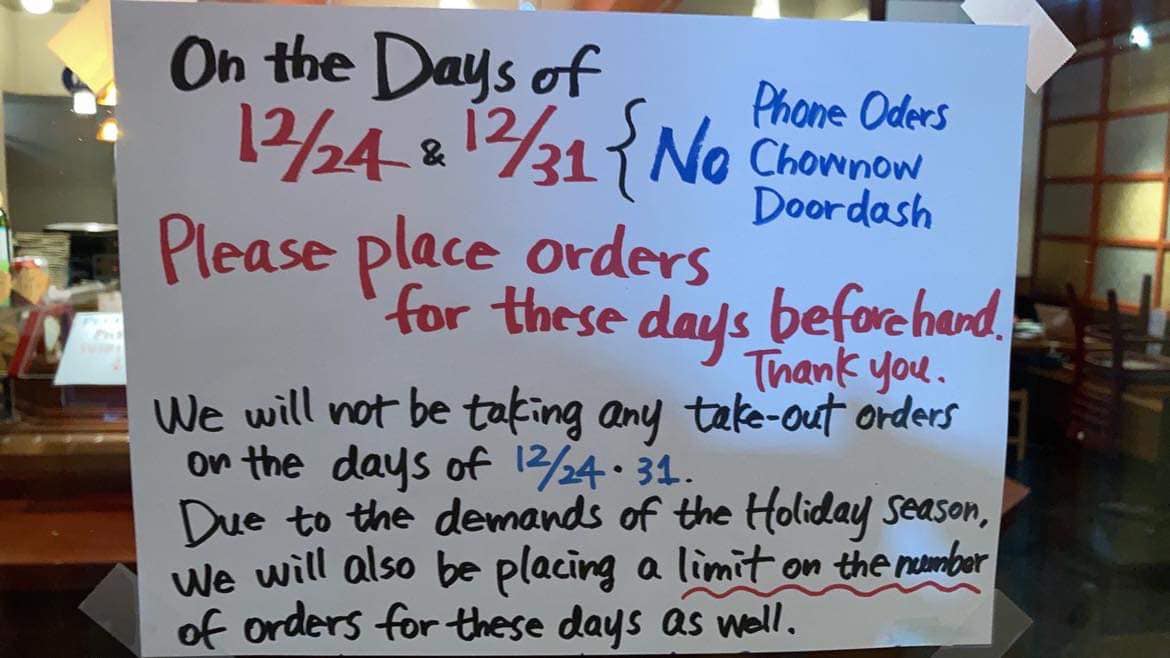 On the Days of
12/24 & 12/31 { No Phone Oders
Chownow
Doordash
Please place orders
for these days beforehand.
Thank you.
We will not be taking any take-out orders
on the days of 12/24 · 31.
Due to the demands of the Holiday season,
We will also be placing a limit on the number
of orders for these days as well.